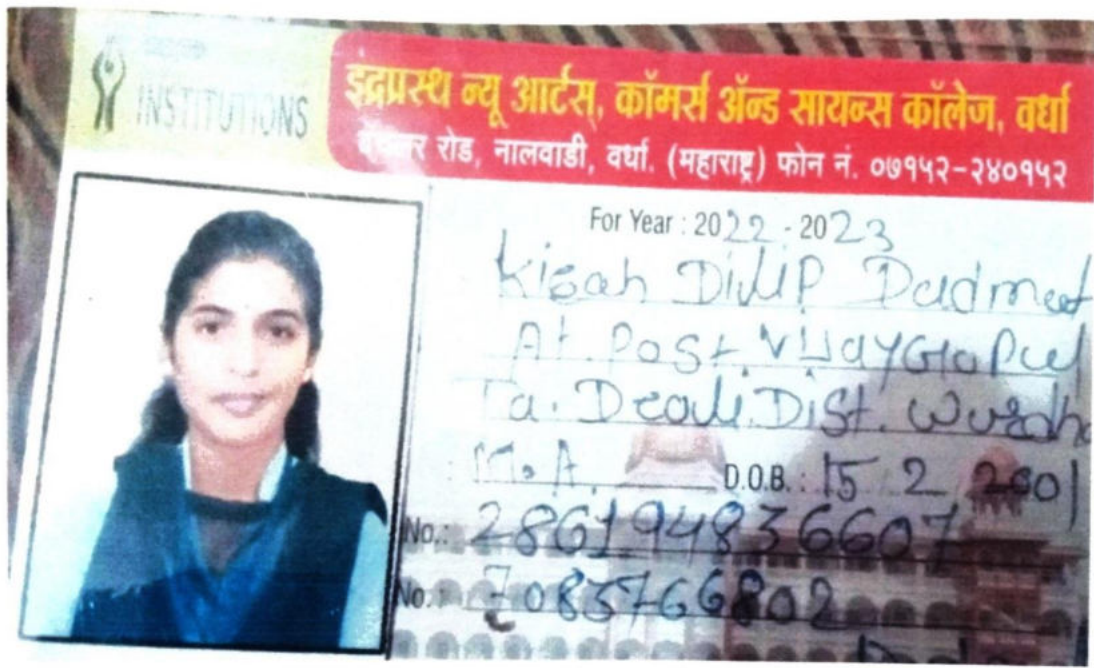 INSTITUTIONS
इंद्रप्रस्थ न्यू आर्टस्, कॉमर्स अ‍ॅन्ड सायन्स कॉलेज, वर्धा
रोड, नालवाडी, वर्धा. (महाराष्ट्र) फोन नं. ०७१५२-२४०१५२
For Year : 2022 - 2023
Dilip
At. Post. VijayGoPul
Ta. Deoli. Dist. Wardha
M.A. D.O.B. : 15 2 2001
No.: 286194836607
No.: 7083766802